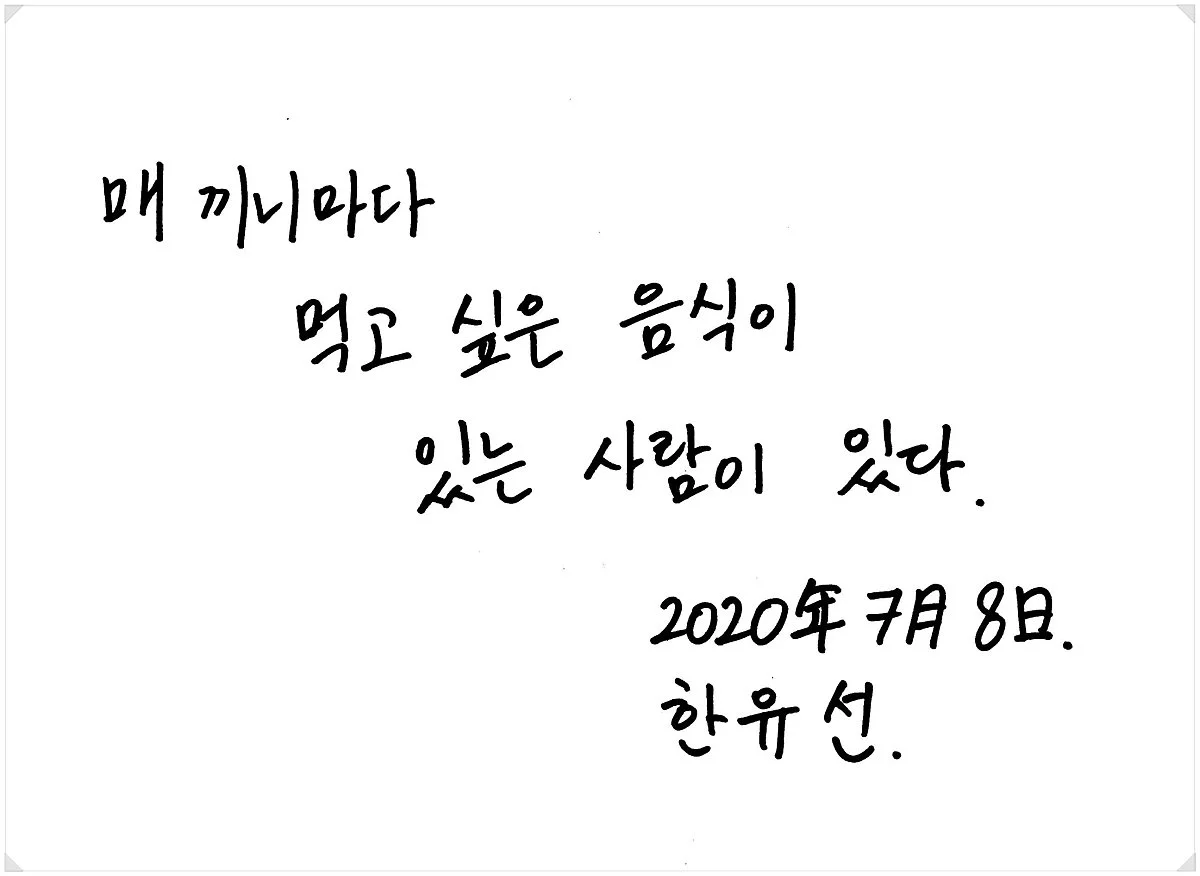 매 끼니마다
먹고 싶은 음식이
있는 사람이 있다.
2020年 7月 8日.
한유선.